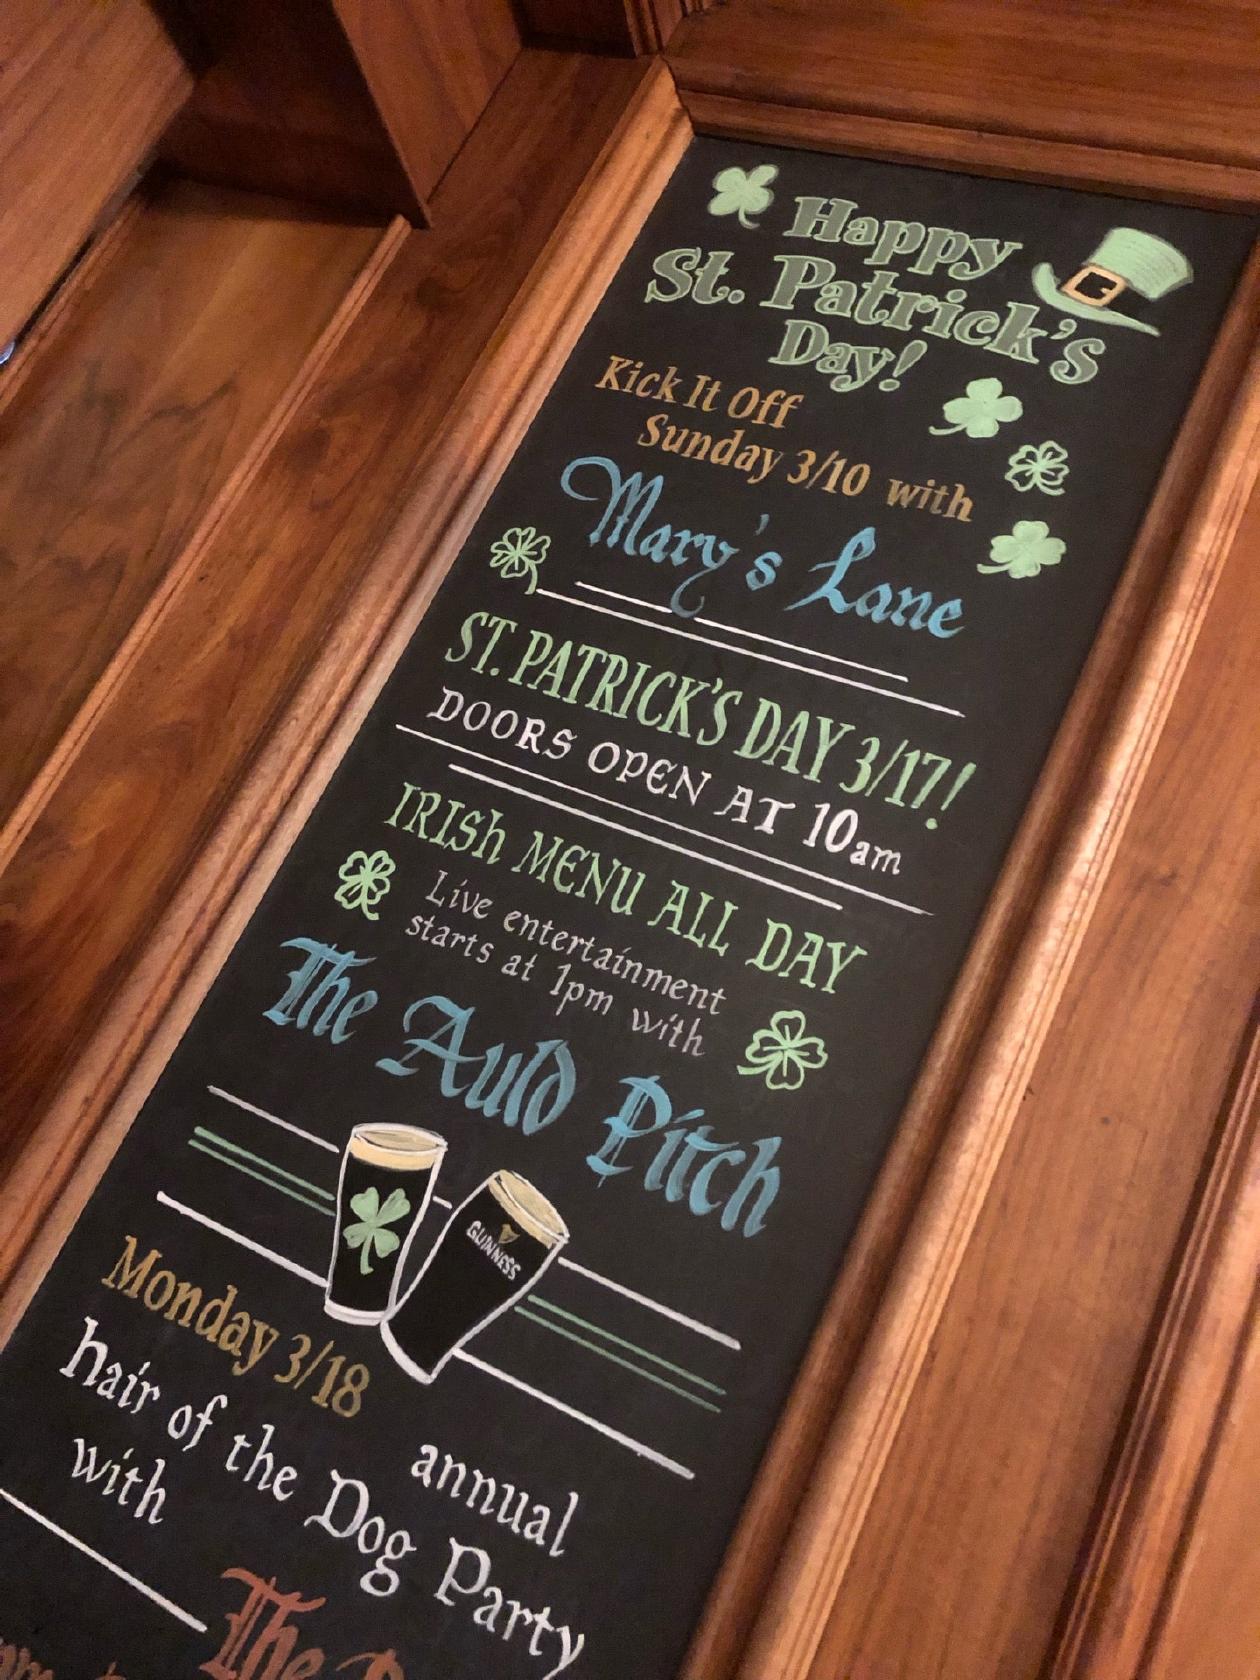 Happy
St. Patrick's
Day!
Kick It Off
Sunday 3/10 with
Mary's Lane
ST. PATRICK'S DAY 3/17!
DOORS OPEN AT 10am
IRISh MENU ALL DAY
Live entertainment
starts at 1pm with
The Auld Pitch
GUINNESS
Monday 3/18
annual
hair of the Dog Party
with
The